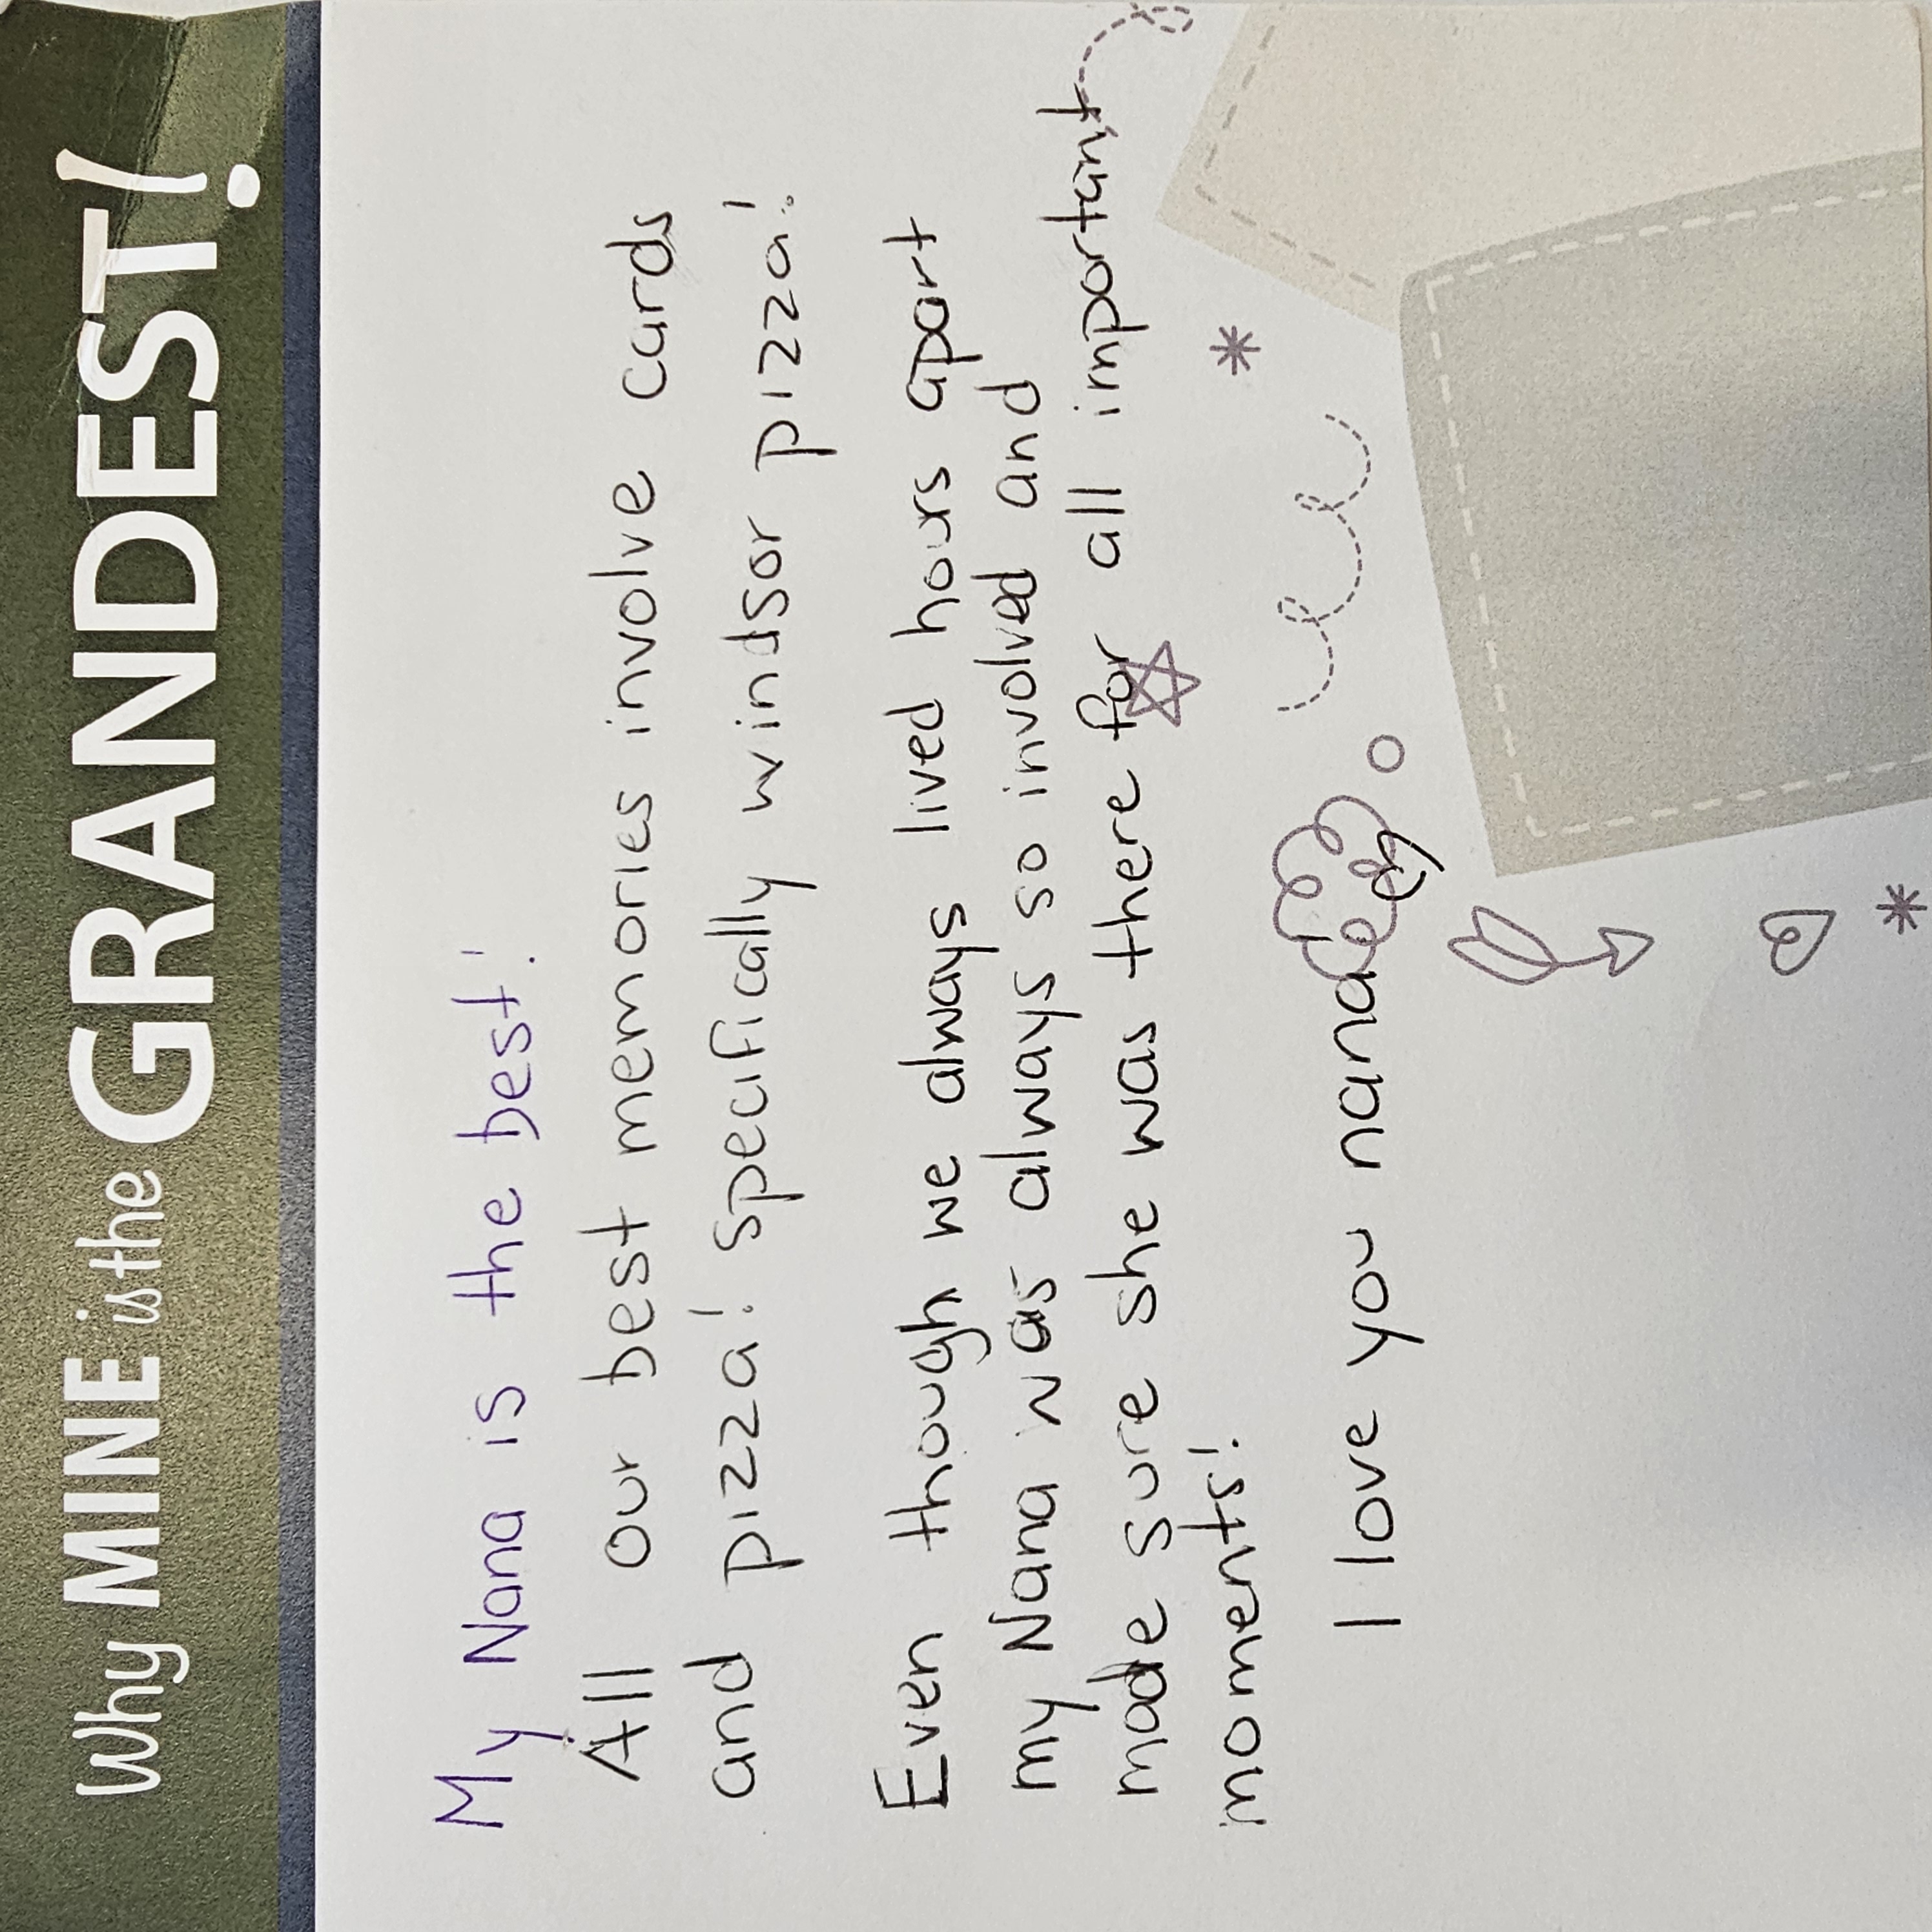 Why MINE is the GRANDEST!
My Nana is the best!
All our best memories involve cards
and pizza! specifically windsor pizza!
Even though we always lived hours apart
my Nana was always so involved and
made sure she was there for all important
moments!
I love you nana